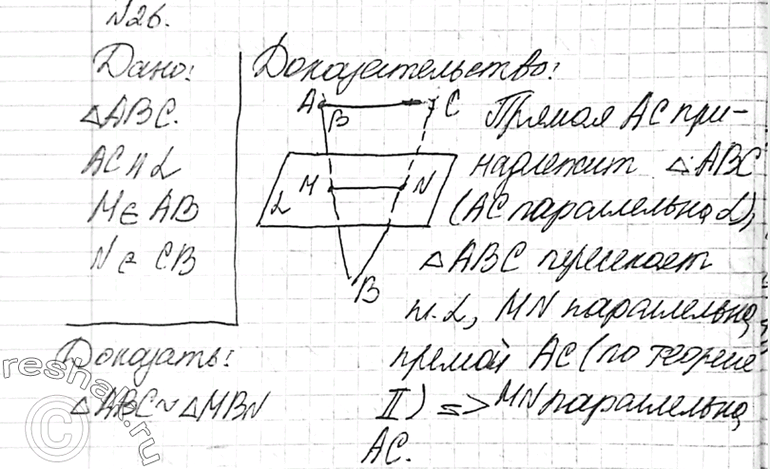 N26.
Дано:
△ABC.
AC ∥ α
M ∈ AB
N ∈ CB
Доказать:
△ABC ~ △MBN
Доказательство:
A
B
C
M
N
α
B
Прямая AC при-
надлежит △ABC
(AC параллельна α),
△ABC пересекает
п. α, MN параллельна
прямой AC (по теореме
II) => MN параллельна
AC.
reshak.ru